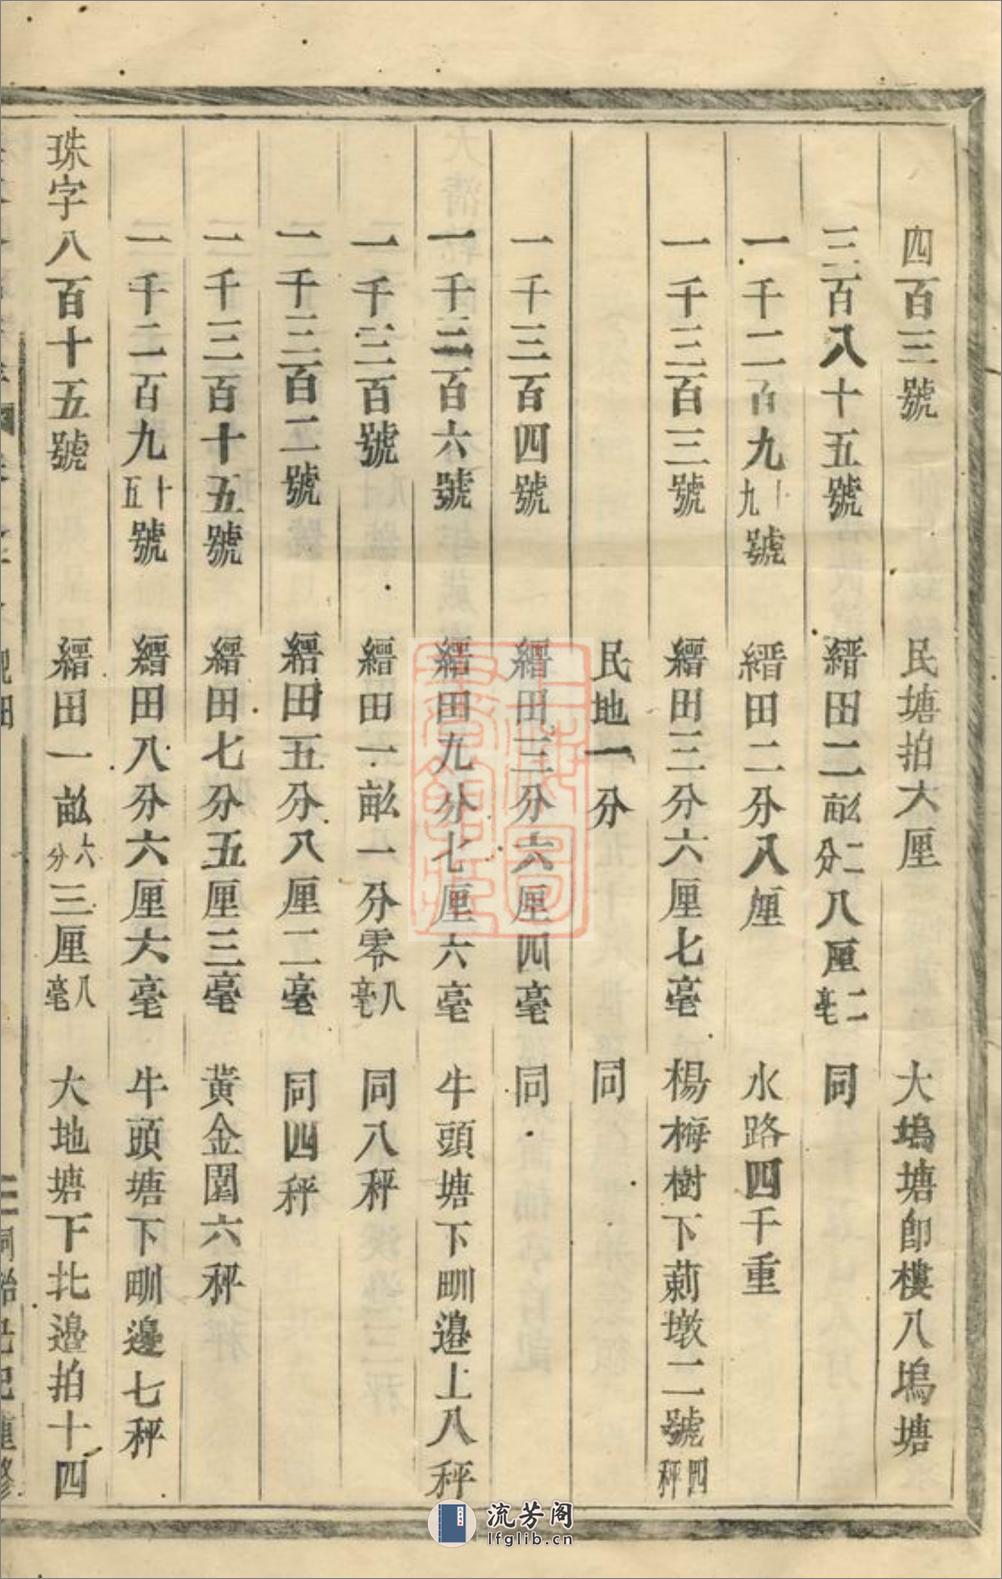 四百三號　民塘拍大厘　大塢塘即樓八塢塘
三百八十五號　縉田二畝二分八厘二毫　同
一千二百九十九號　縉田二分八厘　水路四千重
一千三百三號　縉田三分六厘七毫　楊梅樹下莿墩二號四秤
民地一分　同
一千三百四號　縉田三分六厘四毫　同
一千三百六號　縉田九分七厘六毫　牛頭塘下甽邊上八秤
一千三百號　縉田一畝一分零八毫　同八秤
一千三百二號　縉田五分八厘二毫　同四秤
一千三百十五號　縉田七分五厘三毫　黃金園六秤
一千二百九十五號　縉田八分六厘六毫　牛頭塘下甽邊七秤
珠字八百十五號　縉田一畝六分三厘八毫　大地塘下北邊拍十四
流芳阁
lfglib.cn